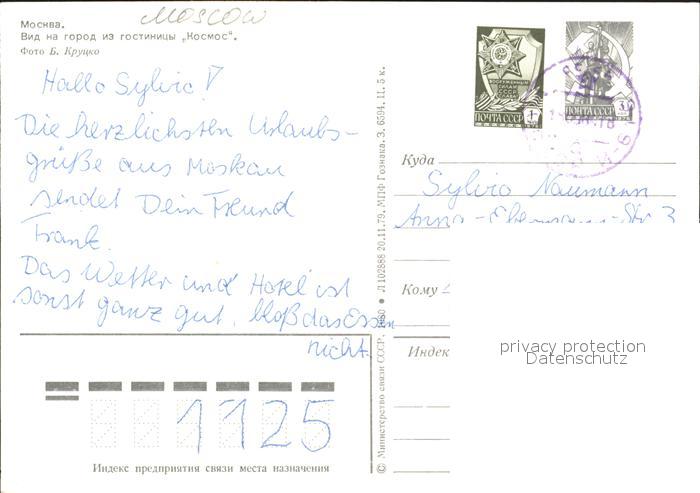 Moscow
Москва.
Вид на город из гостиницы „Космос“.
Фото Б. Круцко
Hallo Sylvio!
Die herzlichsten Urlaubs-
grüße aus Moskau
sendet Dein Freund
Frank.
Das Wetter und Hotel ist
sonst ganz gut, bloß das Essen
nicht.
1125
Индекс предприятия связи места назначения
© Министерство связи СССР, 1980 • Л 102888 20.11.79. МПФ Гознака. З. 6594. Ц. 5 к.
ВООРУЖЕННЫМ
СИЛАМ
СССР
СЛАВА
ПОЧТА СССР 1
ПОЧТА СССР 3
Куда
Sylvio Naumann
Anna-
Str 3
Кому
Индек
privacy protection
Datenschutz